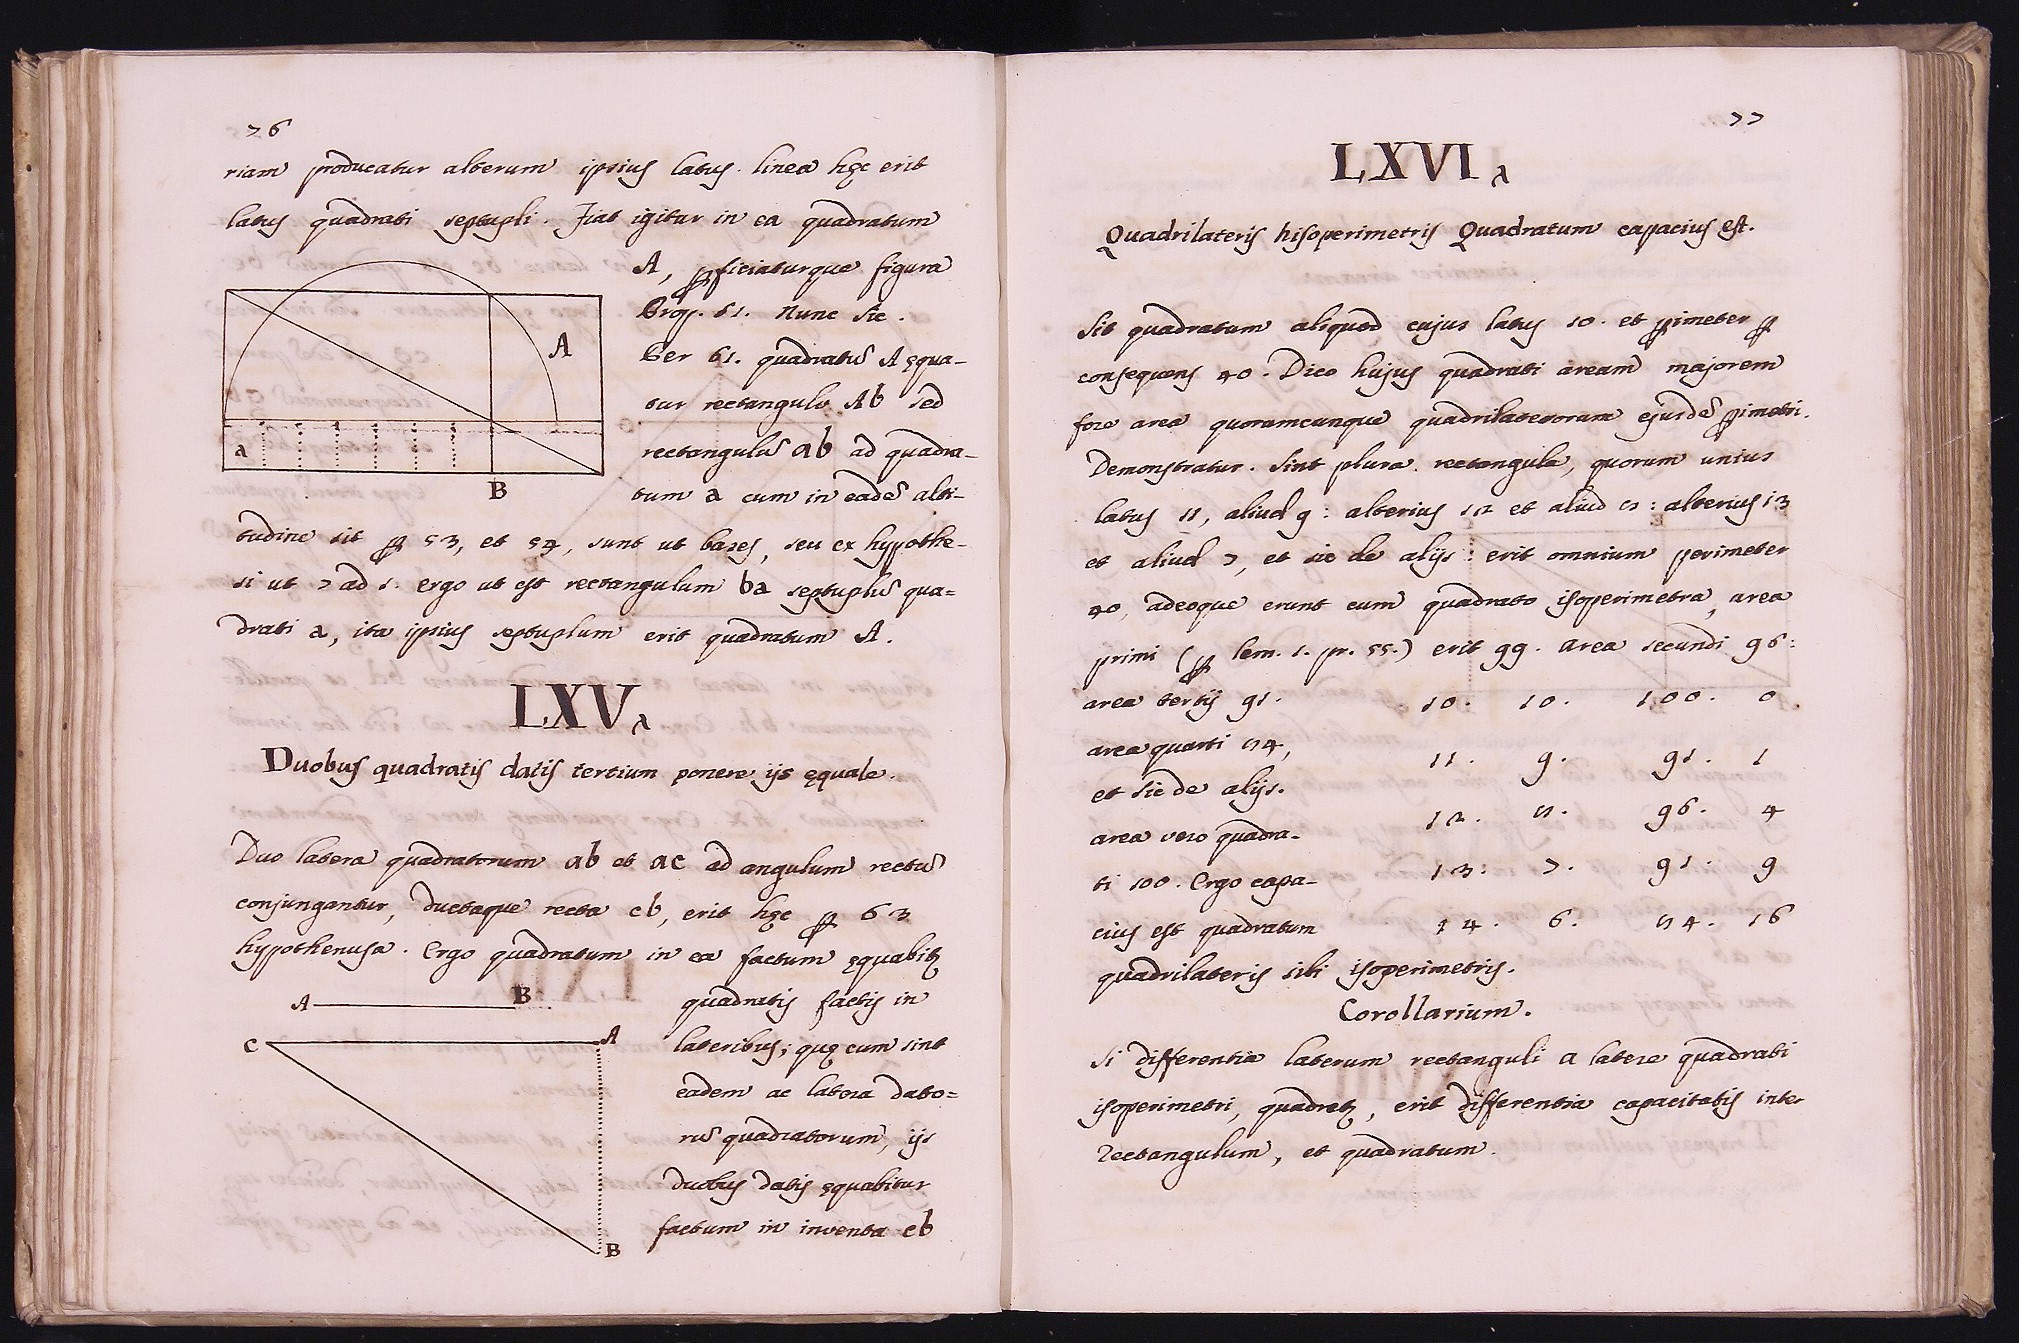 76
riam producatur alterum ipsius latus. linea hęc erit
latus quadrati septupli. Fiat igitur in ea quadratum
A, ꝑficiaturque figura
Prop. 61. Nunc sic.
Per 61. quadratũ A ęqua-
tur rectangulo Ab sed
rectangulũ ab ad quadra-
tum a cum in eadẽ alti-
tudine sit ꝑ 53, et 54, sunt ut bases, seu ex hypothe-
si ut 7 ad 1. ergo ut est rectangulum ba septuplũ qua=
drati a, ita ipsius septuplum erit quadratum A.
A
a
B
LXV
Duobus quadratis datis tertium ponere ijs ęquale.
Duo latera quadratorum ab et ac ad angulum rectũ
conjungantur, ductaque recta cb, erit hęc ꝑ 63
hypothenusa. Ergo quadratum in ea factum ęquabitꝫ
quadratis factis in
lateribus; quę cum sint
eadem ac latera dato=
rũ quadratorum, ijs
duobus datis ęquabitur
factum in inventa cb
A B
C A
B
77
LXVI
Quadrilateris hisoperimetris Quadratum capacius est.
Sit quadratum aliquod cujus latus 10. et ꝑimeter ꝑ
consequens 40. Dico hujus quadrati aream majorem
fore area quorumcunque quadrilaterorum ejusdẽ ꝑimetri.
Demonstratur. Sint plura rectangula, quorum unius
latus 11, aliud 9: alterius 12 et aliud 8: alterius 13
et aliud 7, et sic de alijs: erit omnium perimeter
40, adeoque erunt cum quadrato isoperimetra, area
primi (ꝑ lem. 1. pr. 55.) erit 99. area secundi 96:
area tertij 91.
area quarti 84,
et sic de alijs.
area vero quadra-
ti 100. Ergo capa-
cius est quadratum
quadrilateris sibi isoperimetris.
10. 10. 100. 0
11. 9. 91. 1
12. 8. 96. 4
13: 7. 91. 9
14. 6. 84. 16
Corollarium.
Si differentia laterum rectanguli a latere quadrati
isoperimetri, quadretꝫ, erit differentia capacitatis inter
rectangulum, et quadratum.